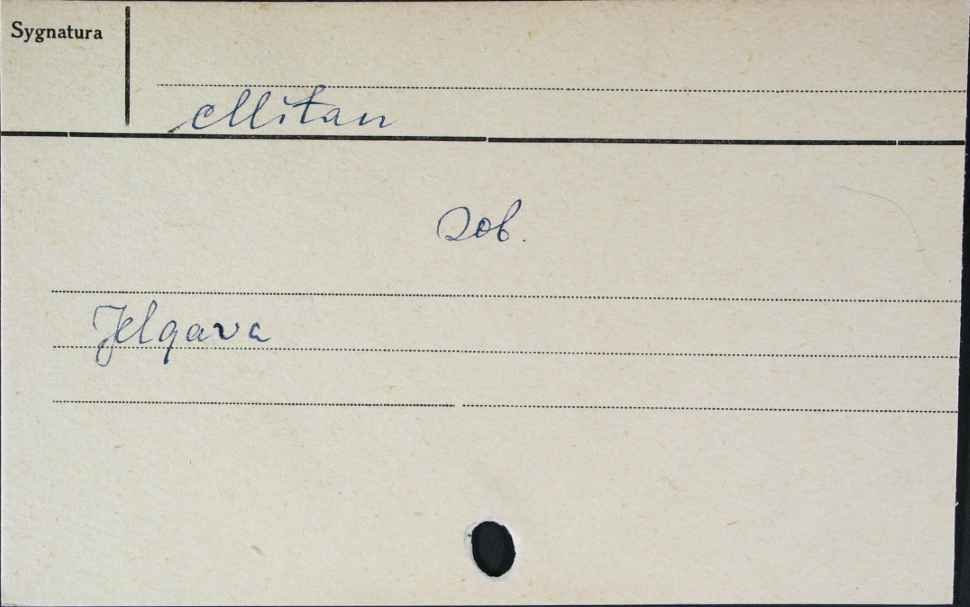 Sygnatura
Mitau
Zob.
Jelgava